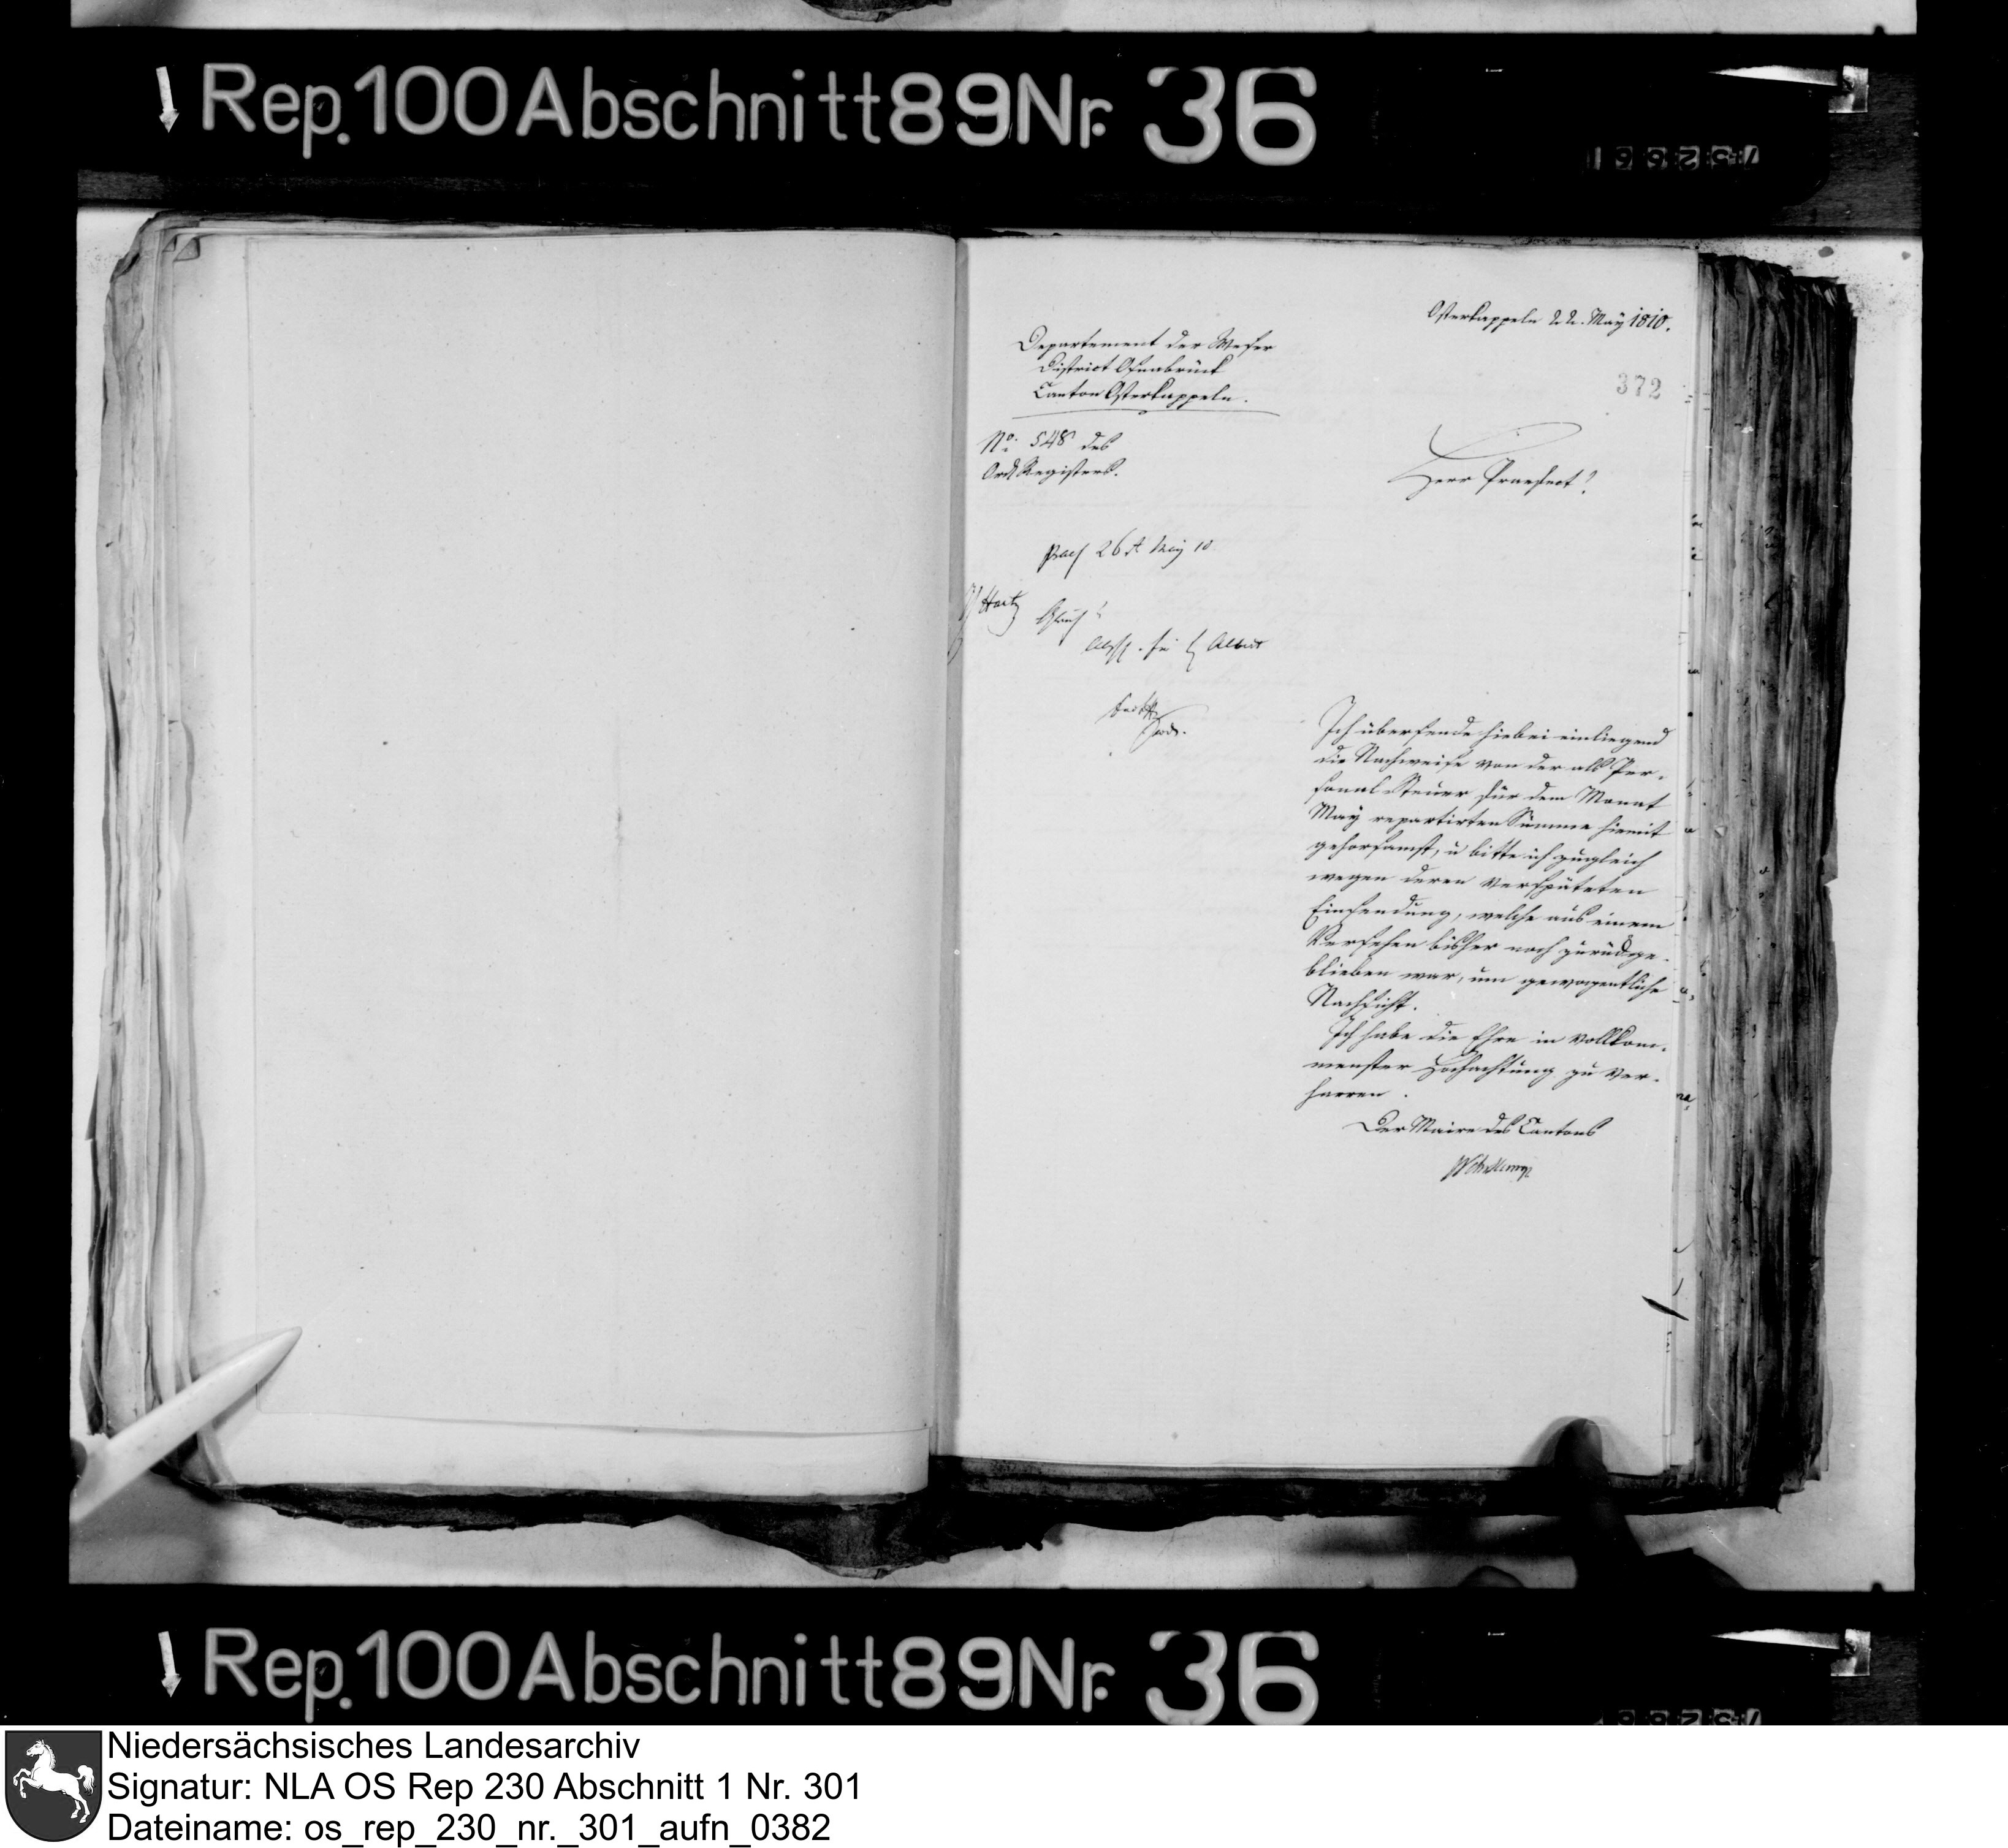 Rep. 100 Abschnitt 89 Nr. 36
Osterkappeln 22. May 1810.
Departement der Weser
District Osnabrück
Canton Osterkappeln.
372
No. 548 des
Register.
Herr Praefect!
26 May 10
Ich übersende hiebei einliegend
die Nachweise von der als Per-
sonal-Steuer für dem Monat
May repartirten Summe hiemit
gehorsamst, u bitte ich zugleich
wegen deren verspäteten
Einsendung, welche aus einem
Versehen bisher noch zurückge-
blieben war, um gewogentliche
Nachsicht.
Ich habe die Ehre in vollkom-
menster Hochachtung zu ver-
harren.
Der Maire des Cantons
Rep. 100 Abschnitt 89 Nr. 36
Niedersächsisches Landesarchiv
Signatur: NLA OS Rep 230 Abschnitt 1 Nr. 301
Dateiname: os_rep_230_nr._301_aufn_0382